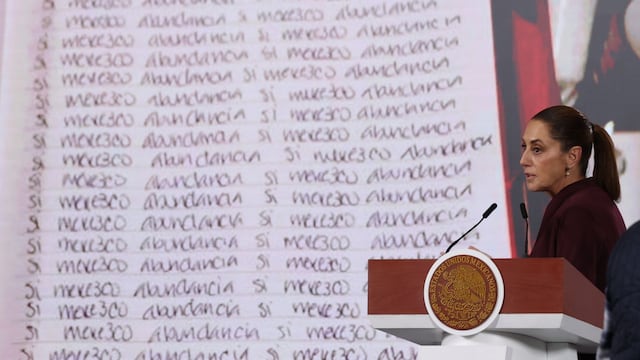 si mere3co abundancia si mere3co abundancia
si mere3co abundancia si mere3co abundancia
si mere3co abundancia si mere3co abundancia
si mere3co abundancia si mere3co abundancia
si mere3co abundancia si mere3co abundancia
si mere3co abundancia si mere3co abundancia
si mere3co abundancia si mere3co abundancia
si mere3co abundancia si mere3co abundancia
si mere3co abundancia si mere3co abundancia
si mere3co abundancia si mere3co abundancia
si mere3co abundancia si mere3co abundancia
si mere3co abundancia si mere3co abundancia
si mere3co abundancia si mere3co
si mere3co abundancia si mere3co
si mere3co abundancia si mere3co
si mere3co abundancia si mere3co
si mere3co abundancia si mere3co abundancia
ESTADOS UNIDOS MEXICANOS